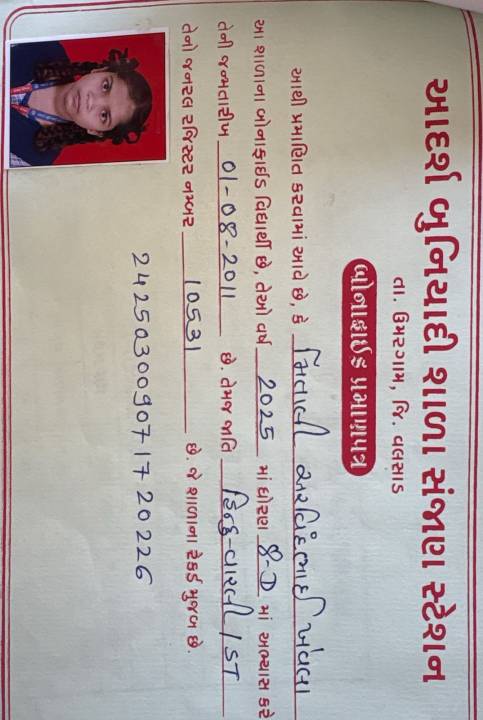 આદર્શ બુનિયાદી શાળા સંજાણ સ્ટેશન
તા. ઉમરગામ, જિ. વલસાડ
બોનાફાઈડ પ્રમાણપત્ર
આથી પ્રમાણિત કરવામાં આવે છે, કે મિતાલી અરવિંદભાઈ ખેવલા
આ શાળાના બોનાફાઈડ વિદ્યાર્થી છે, તેઓ વર્ષ 2025 માં ધોરણ 8-D માં અભ્યાસ કરે
તેની જન્મતારીખ 01-08-2011 છે. તેમજ જાતિ હિન્દુ-વારલી / ST
તેનો જનરલ રજિસ્ટર નમ્બર 10531 છે. જે શાળાના રેકર્ડ મુજબ છે.
242503009071720226